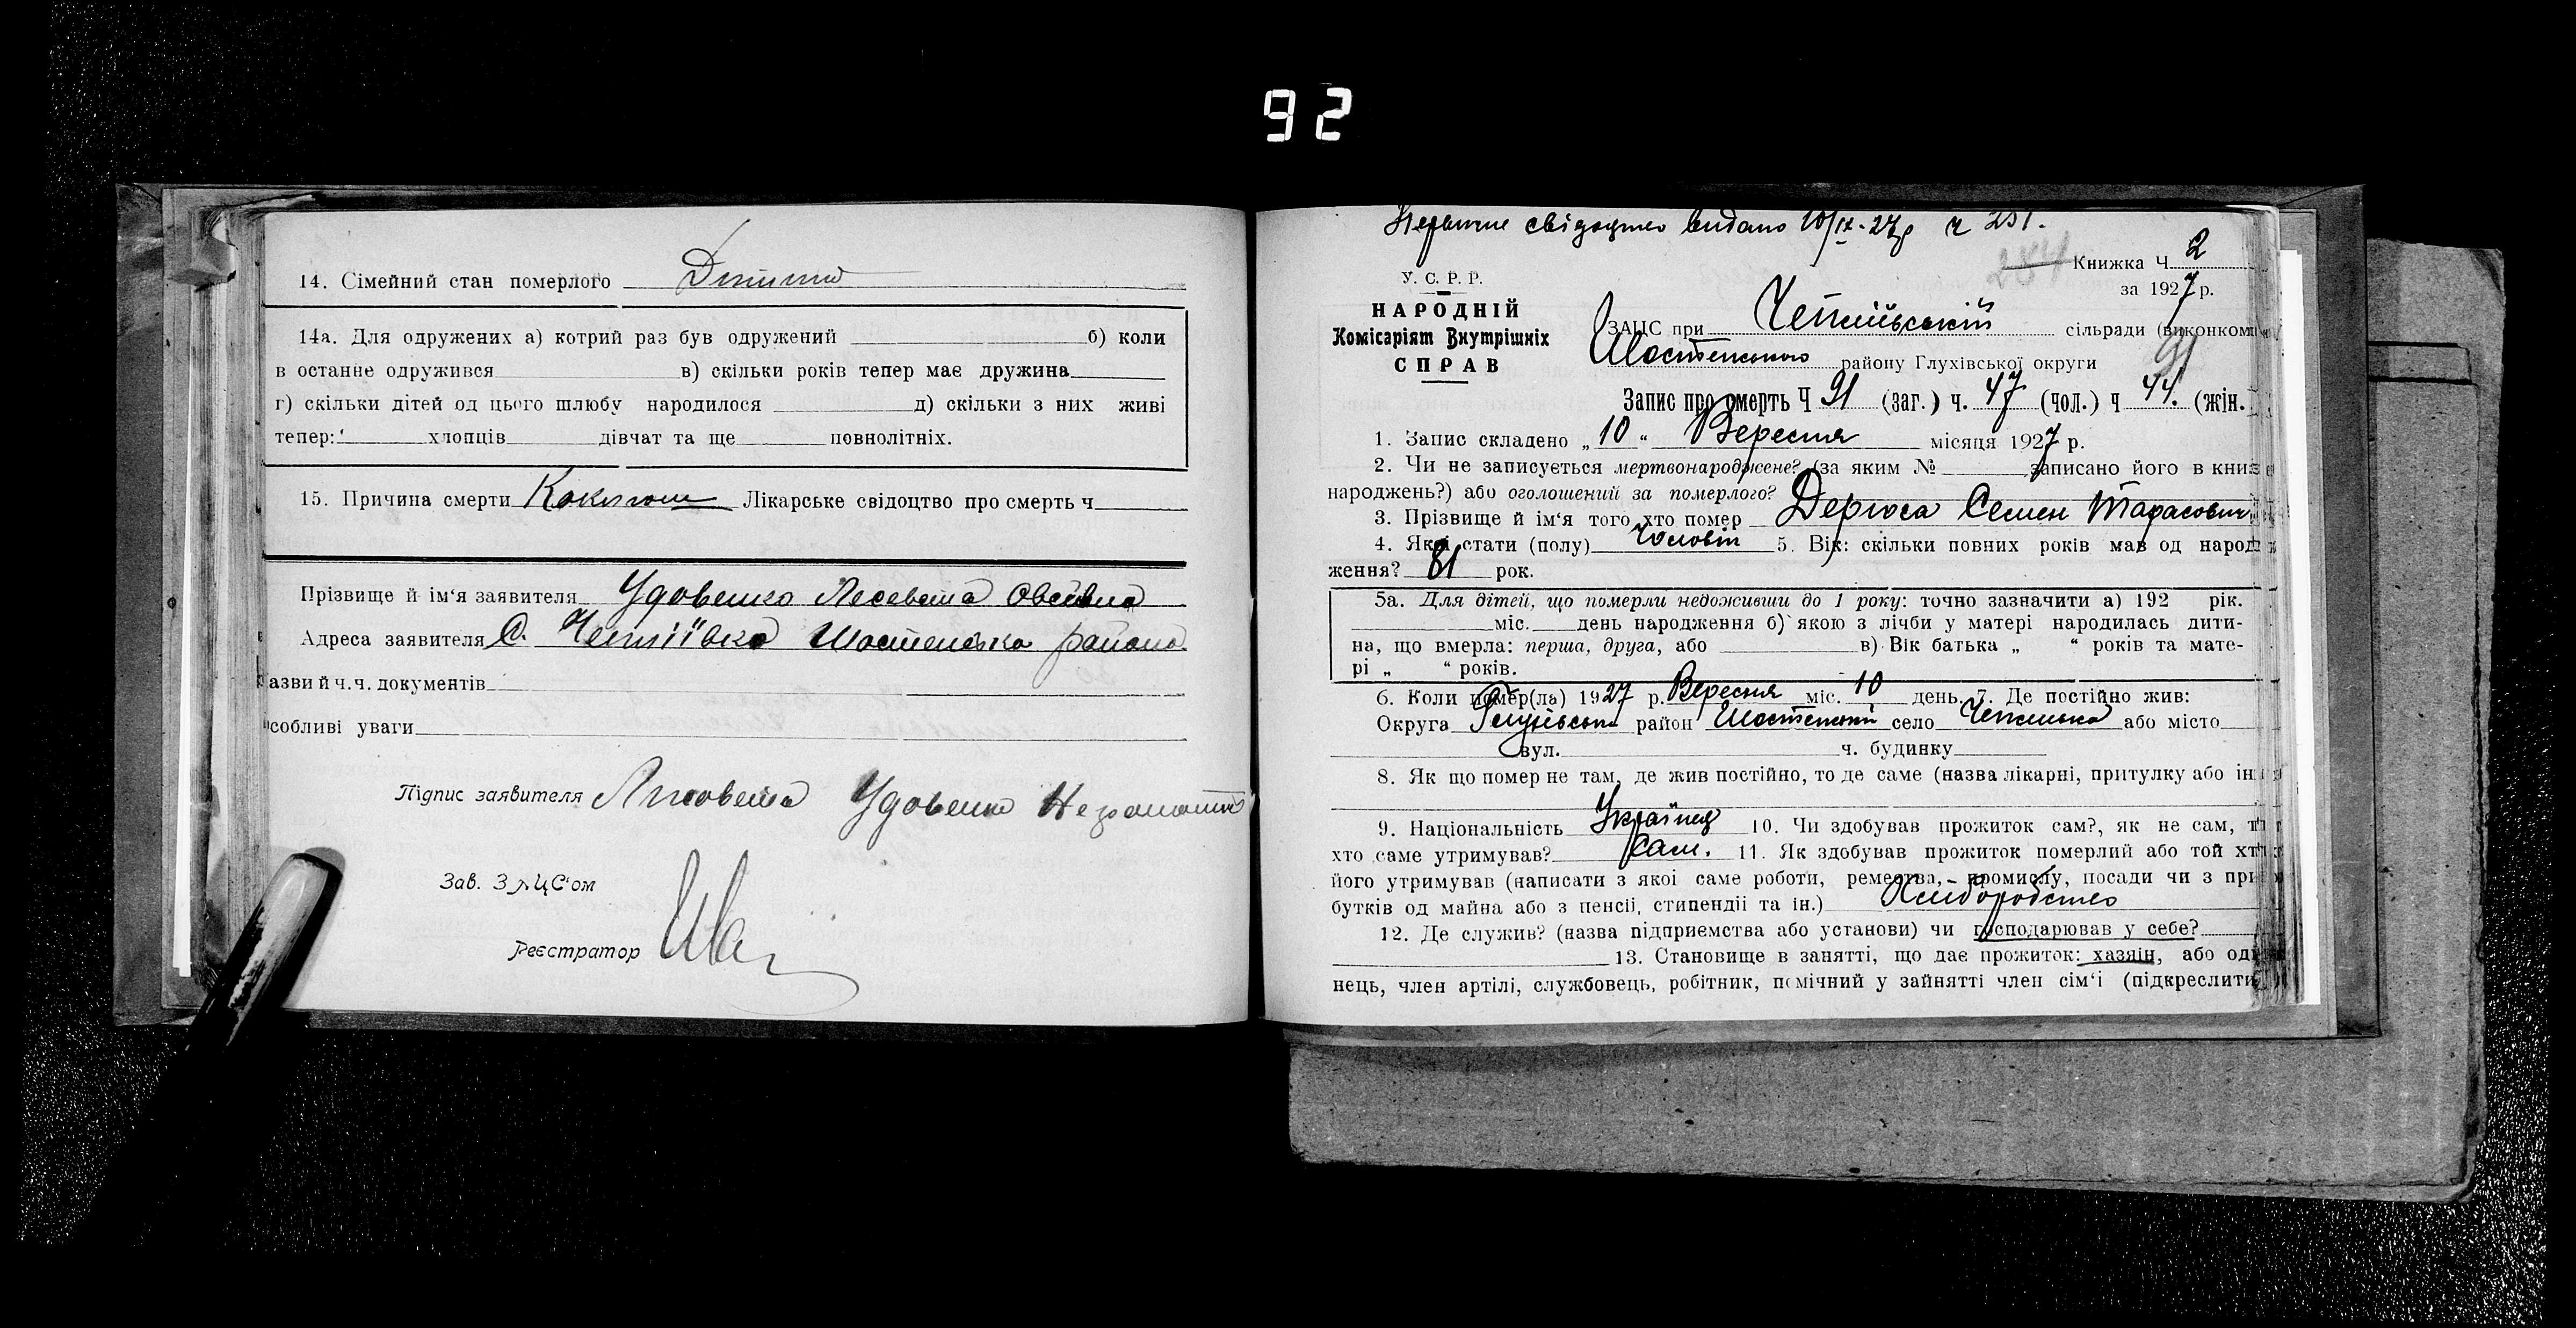 92
14. Сімейний стан померлого Дитина
14а. Для одружених а) котрий раз був одружений б) коли
в останнє одружився в) скільки років тепер має дружина
г) скільки дітей од цього шлюбу народилося д) скільки з них живі
тепер: хлопців дівчат та ще повнолітніх.
15. Причина смерти Коклюш Лікарське свідоцтво про смерть ч
Прізвище й ім‘я заявителя Удовенко Лесевета Овсіївна
Адреса заявителя С. Чепліївка Шостенсько района
азви й ч.ч. документів
собливі уваги
Підпис заявителя Удовенко Неграмотна
Зав. ЗАЦС‘ом
Реєстратор
Первичне свідоцтво видано 10/IX-27р ч 251.
Книжка Ч 2
У. С. Р. Р.
за 1927 р.
НАРОДНІЙ
Комісаріят Внутрішніх
СПРАВ
ЗАЦС при Чепліївській сільради (виконком
Шостенського району Глухівської округи
91
Запис про смерть Ч 91 (заг.) ч. 47 (чол.) ч 44. (жін.
1. Запис складено „10“ Вересня місяця 1927 р.
2. Чи не записується мертвонароджене? (за яким № записано його в книз
народжень?) або оголошений за померлого?
3. Прізвище й ім‘я того хто помер Дергоса Семен Тарасович
4. Якої стати (полу) Чоловік 5. Вік: скільки повних років мав од народ
ження? 81 рок.
5а. Для дітей, що померли недоживши до 1 року: точно зазначити а) 192 рік.
міс. день народження б) якою з лічби у матері народилась дити-
на, що вмерла: перша, друга, або в) Вік батька „ “ років та мате-
рі „ “ років.
6. Коли помер(ла) 1927 р. Вересня міс. 10 день. 7. Де постійно жив:
Округа Глухівська район Шостенський село Чепліївка або місто
вул. ч. будинку
8. Як що помер не там, де жив постійно, то де саме (назва лікарні, притулку або ін
9. Національність Українец 10. Чи здобував прожиток сам?, як не сам, т
хто саме утримував? Сам. 11. Як здобував прожиток померлий або той хт
його утримував (написати з якоі саме роботи, ремества, промислу, посади чи з при
бутків од майна або з пенсіі, стипендіі та ін.) Хліборобство
12. Де служив? (назва підприємства або установи) чи господарював у себе?
13. Становище в занятті, що дає прожиток: хазяін, або оди
нець, член артілі, службовець, робітник, помічний у зайнятті член сім‘і (підкреслити